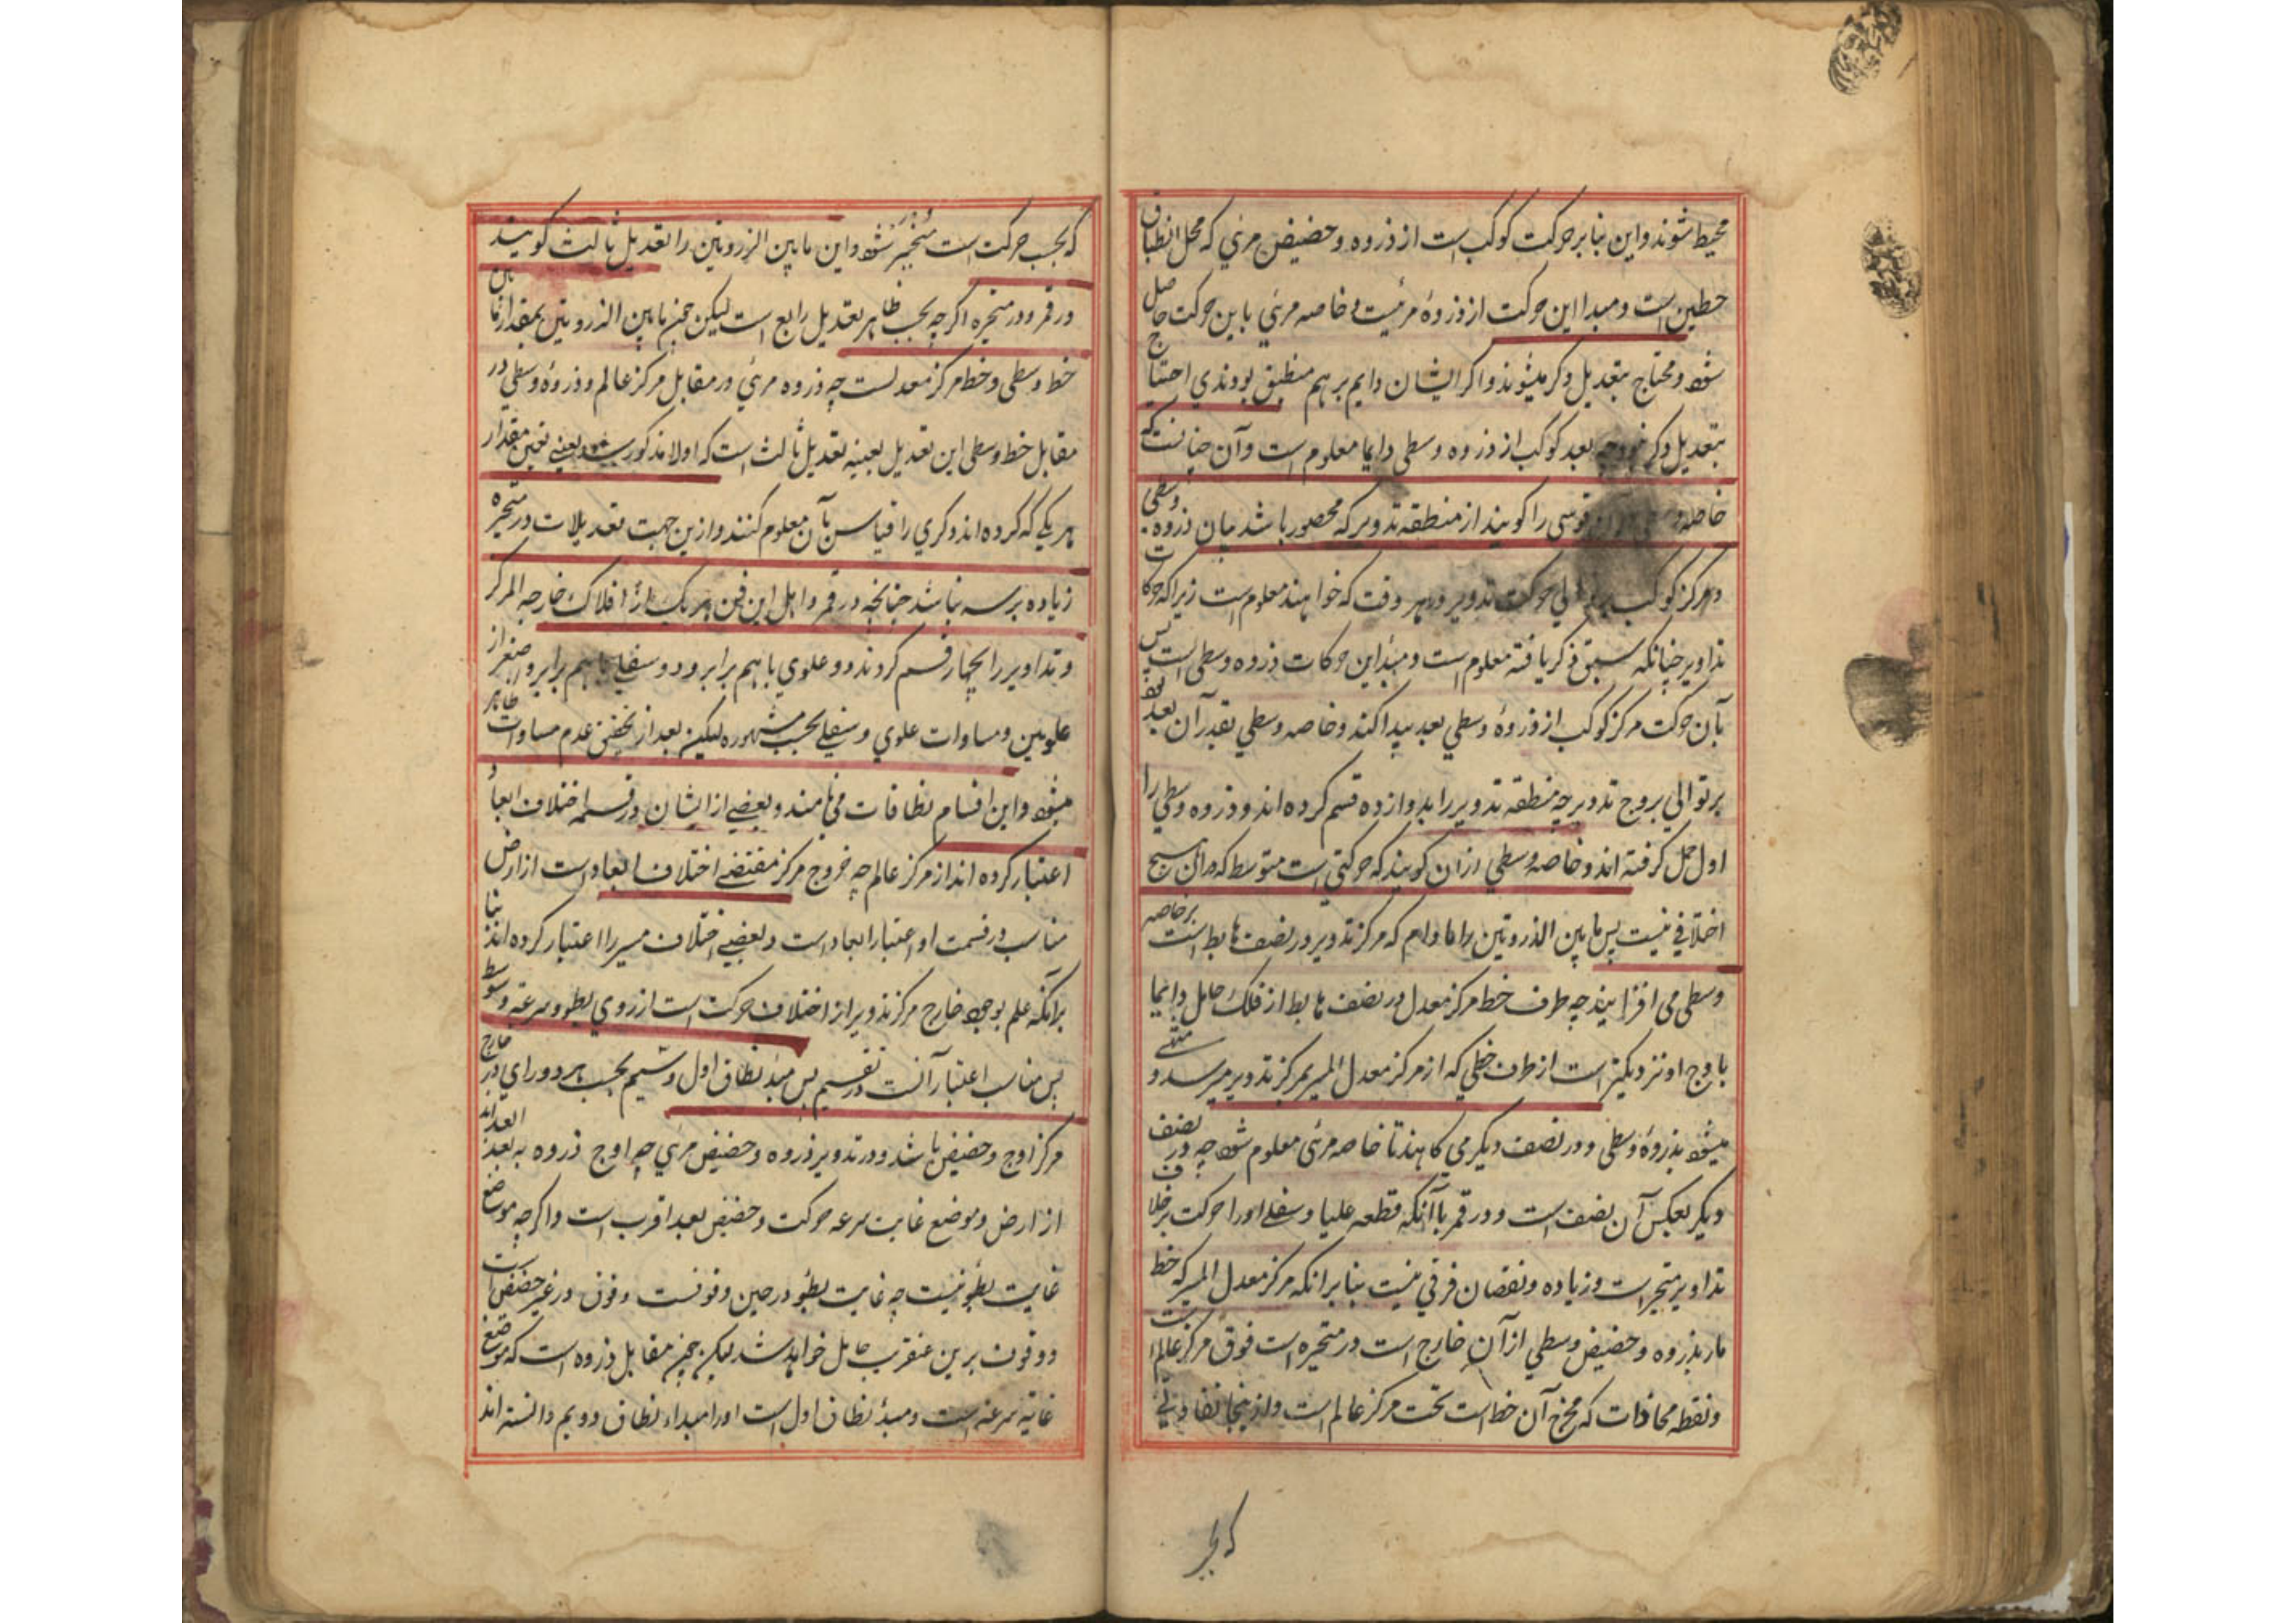 محیط شوند و این بنا بر حرکت کوکب است از ذروه و حضیض مرئی که محل انطباق
خطین است و مبدا این حرکت از ذروهٔ مرئیست و خاصه مرئی باین حرکت حاصل
شود و محتاج بتعدیل دکر میشوند و اکر ایشان دایم بر هم منطبق بودندی احتیاج
بتعدیل دکر نبودی چه بعد کوکب از ذروه وسطی دایما معلوم است و آن چنانست که
خاصه وسطی قوسی را کویند از منطقه تدویر که محصور باشد میان ذروه وسطی
و مرکز کوکب بر توالی حرکت تدویر و هر وقت که خواهند معلوم است زیرا که حرکات
تداویر چنانکه سبق ذکر یافته معلوم است و مبدٔ این حرکات ذروه وسطی است پس
بآن حرکت مرکز کوکب از ذروهٔ وسطی بعد پیدا کند و خاصه وسطی بقدر آن بعد بود
بر توالی بروج تدویر چه منطقه تدویر را بدوازده قسم کرده اند و ذروه وسطی را
اول حمل کرفته اند و خاصه وسطی ازان کویند که حرکتی است متوسط که دران هیچ
اختلافی نیست پس ما بین الذروتین را مادام که مرکز تدویر در نصف هابط است بر خاصه
وسطی می افزایند چه طرف خط مرکز معدل در نصف هابط از فلک حامل دایما
باوج او نزدیکتر است از طرف خطی که از مرکز معدل المسیر بمرکز تدویر میرسد و منتهی
میشود بذروهٔ وسطی و در نصف دیکر می کاهند تا خاصه مرئی معلوم شود چه در نصف
دیکر بعکس آن نصف است و در قمر با آنکه قطعه علیا و سفلی او را حرکت بر خلاف
تداویر متحیره است در زیاده و نقصان فرقی نیست بنا بر آنکه مرکز معدل المسیر که خط
مار بذروه و حضیض وسطی از آن خارج است در متحیره است فوق مرکز عالمست
و نقطه محاذات که مخرج آن خط است تحت مرکز عالم است و از ینجا تفاوتی
که بحسب
که بحسب حرکت است منجبر شود و این ما بین الذروتین را تعدیل ثالث کویند
در قمر و در متحیره اکر چه بحسب ظاهر تعدیل رابع است لیکن چون ما بین الذروتین بمقدار مابین
خط وسطی و خط مرکز معدلست چه ذروه مرئی در مقابل مرکز عالم و ذروهٔ وسطی در
مقابل خط وسطی این تعدیل بعینه تعدیل ثالث است که اولا مذکور شد یعنی تعین مقدار
هر یکی که کرده اند دکری را قیاس بآن معلوم کنند و ازین جهت تعدیلات در متحیره
زیاده بر سه نباشد چنانچه در قمر و اهل این فن هر یک از افلاک خارجه المرکز
و تداویر را بچهار قسم کردند دو علوی با هم برابر و دو سفلی با هم برابر و اصغر از
علویین و مساوات علوی و سفلی بحسب مشهوره لیکن بعد از تفحص عدم مساوات ظاهر
میشود و این اقسام نطاقات می نامند و بعضی از ایشان در قسمه اختلاف ابعاد
اعتبار کرده اند از مرکز عالم چه خروج مرکز مقتضی اختلاف ابعاد است از ارض
مناسب در قسمت او اعتبار ابعاد است و بعضی اختلاف مسیر را اعتبار کرده اند بنا
برآنکه علم بوجود خارج مرکز تدویر از اختلاف حرکت است از روی بطو و سرعة و توسط
پس مناسب اعتبار آنست در تقسیم پس مبدٔ نطاق اول و سیم بحسب هر دو رای در خارج
مرکز اوج و حضیض باشد و در تدویر ذروه و حضیض مرئی چه اوج ذروه بعد ابعد
از ارض و موضع غایت سرعه حرکت و حضیض بعد اقرب است و اکر چه موضع
غایت بطو نیست چه غایت بطو در حین وقوفست و وقوف در غیر حضیض است
و وقوف برین عنقریب حاصل خواهد شد لیکن چون مقابل ذروه است که موضع
غایة سرعه است و مبدٔ نطاق اول است او را مبداء نطاق دویم دانسته اند